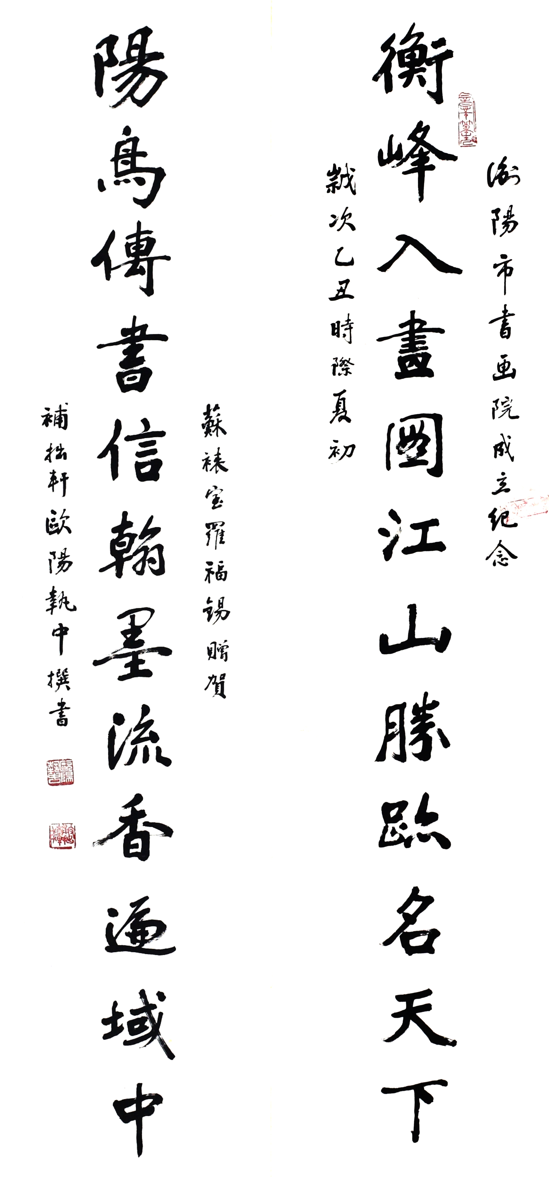 衡陽市書画院成立纪念
衡峰入畫圖江山勝跡名天下
歲次乙丑時際夏初
蘇裱室羅福錫贈賀
陽鳥傳書信翰墨流香遍域中
補拙軒歐陽執中撰書